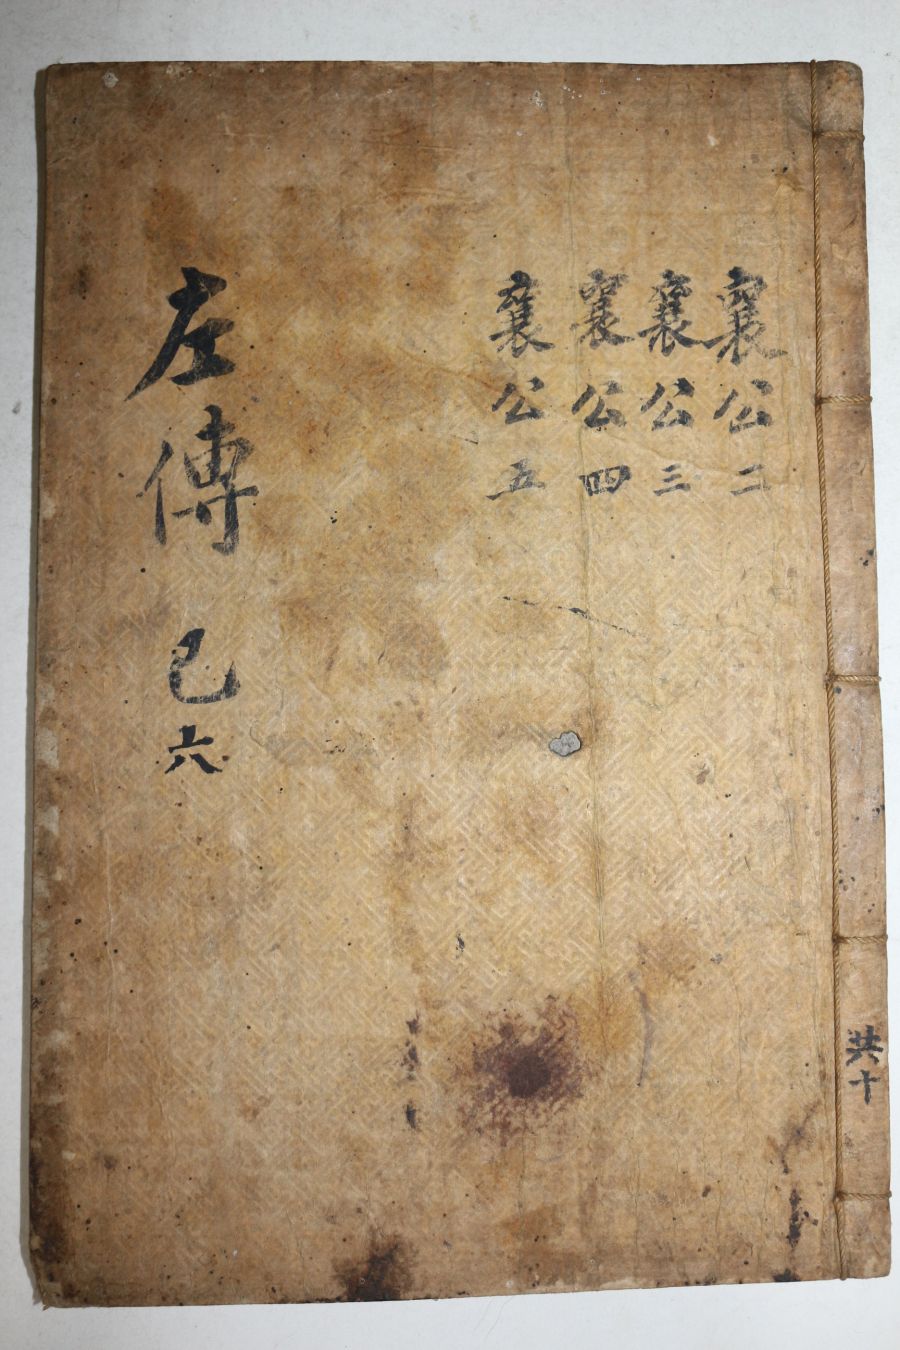 襄公二
襄公三
襄公四
襄公五
左傳 己 六
共十